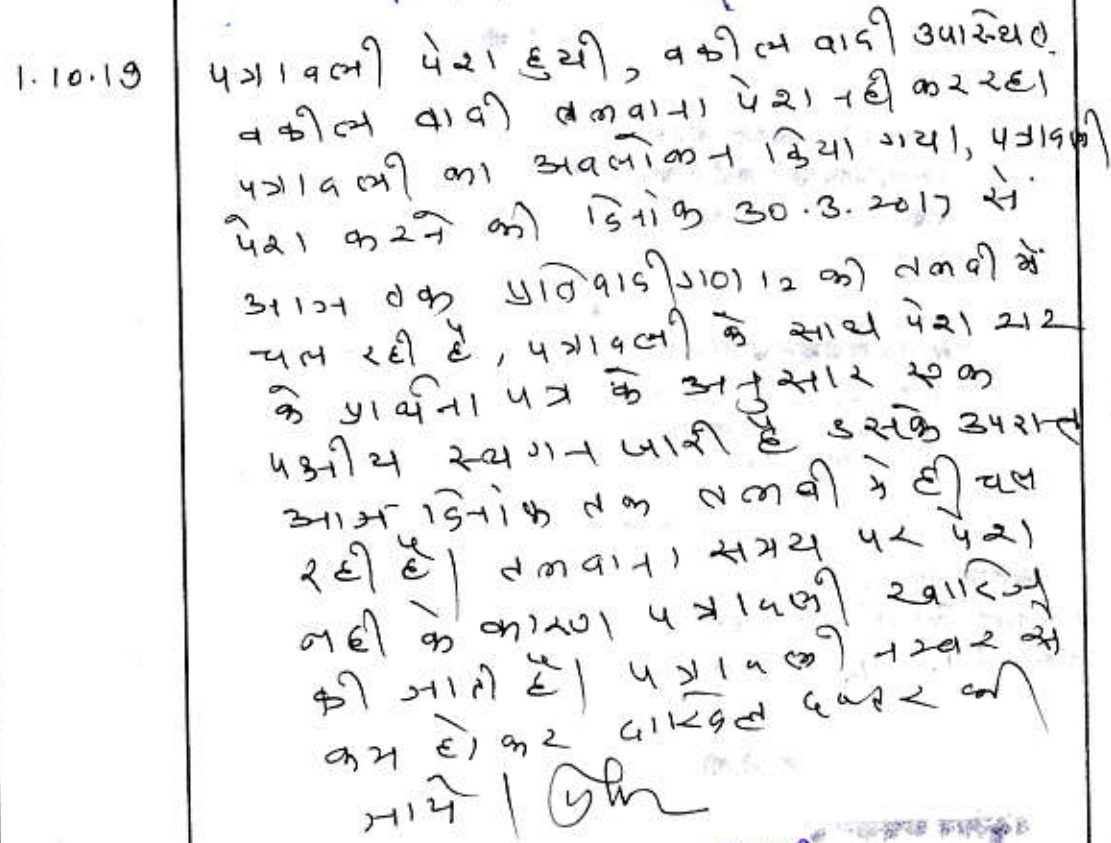 1.10.19 पत्रावली पेश हुयी, वकील वादी उपस्थित
वकील वादी तलवाना पेश नही कर रहा
पत्रावली का अवलोकन किया गया, पत्रावली
पेश करने की दिनांक 30.3.2017 से
आज तक प्रतिवादीगण 12 की तलवी में
चल रही है, पत्रावली के साथ पेश
के प्रार्थना पत्र के अनुसार एक
पक्षीय स्थगन जारी है इसके उपरान्त
आज दिनांक तक तलवी मे ही चल
रही है। तलवाना समय पर पेश
नही के कारण पत्रावली खारिज
की जाती है। पत्रावली नम्बर से
कम होकर दाखिल दफ्तर की
जाये।